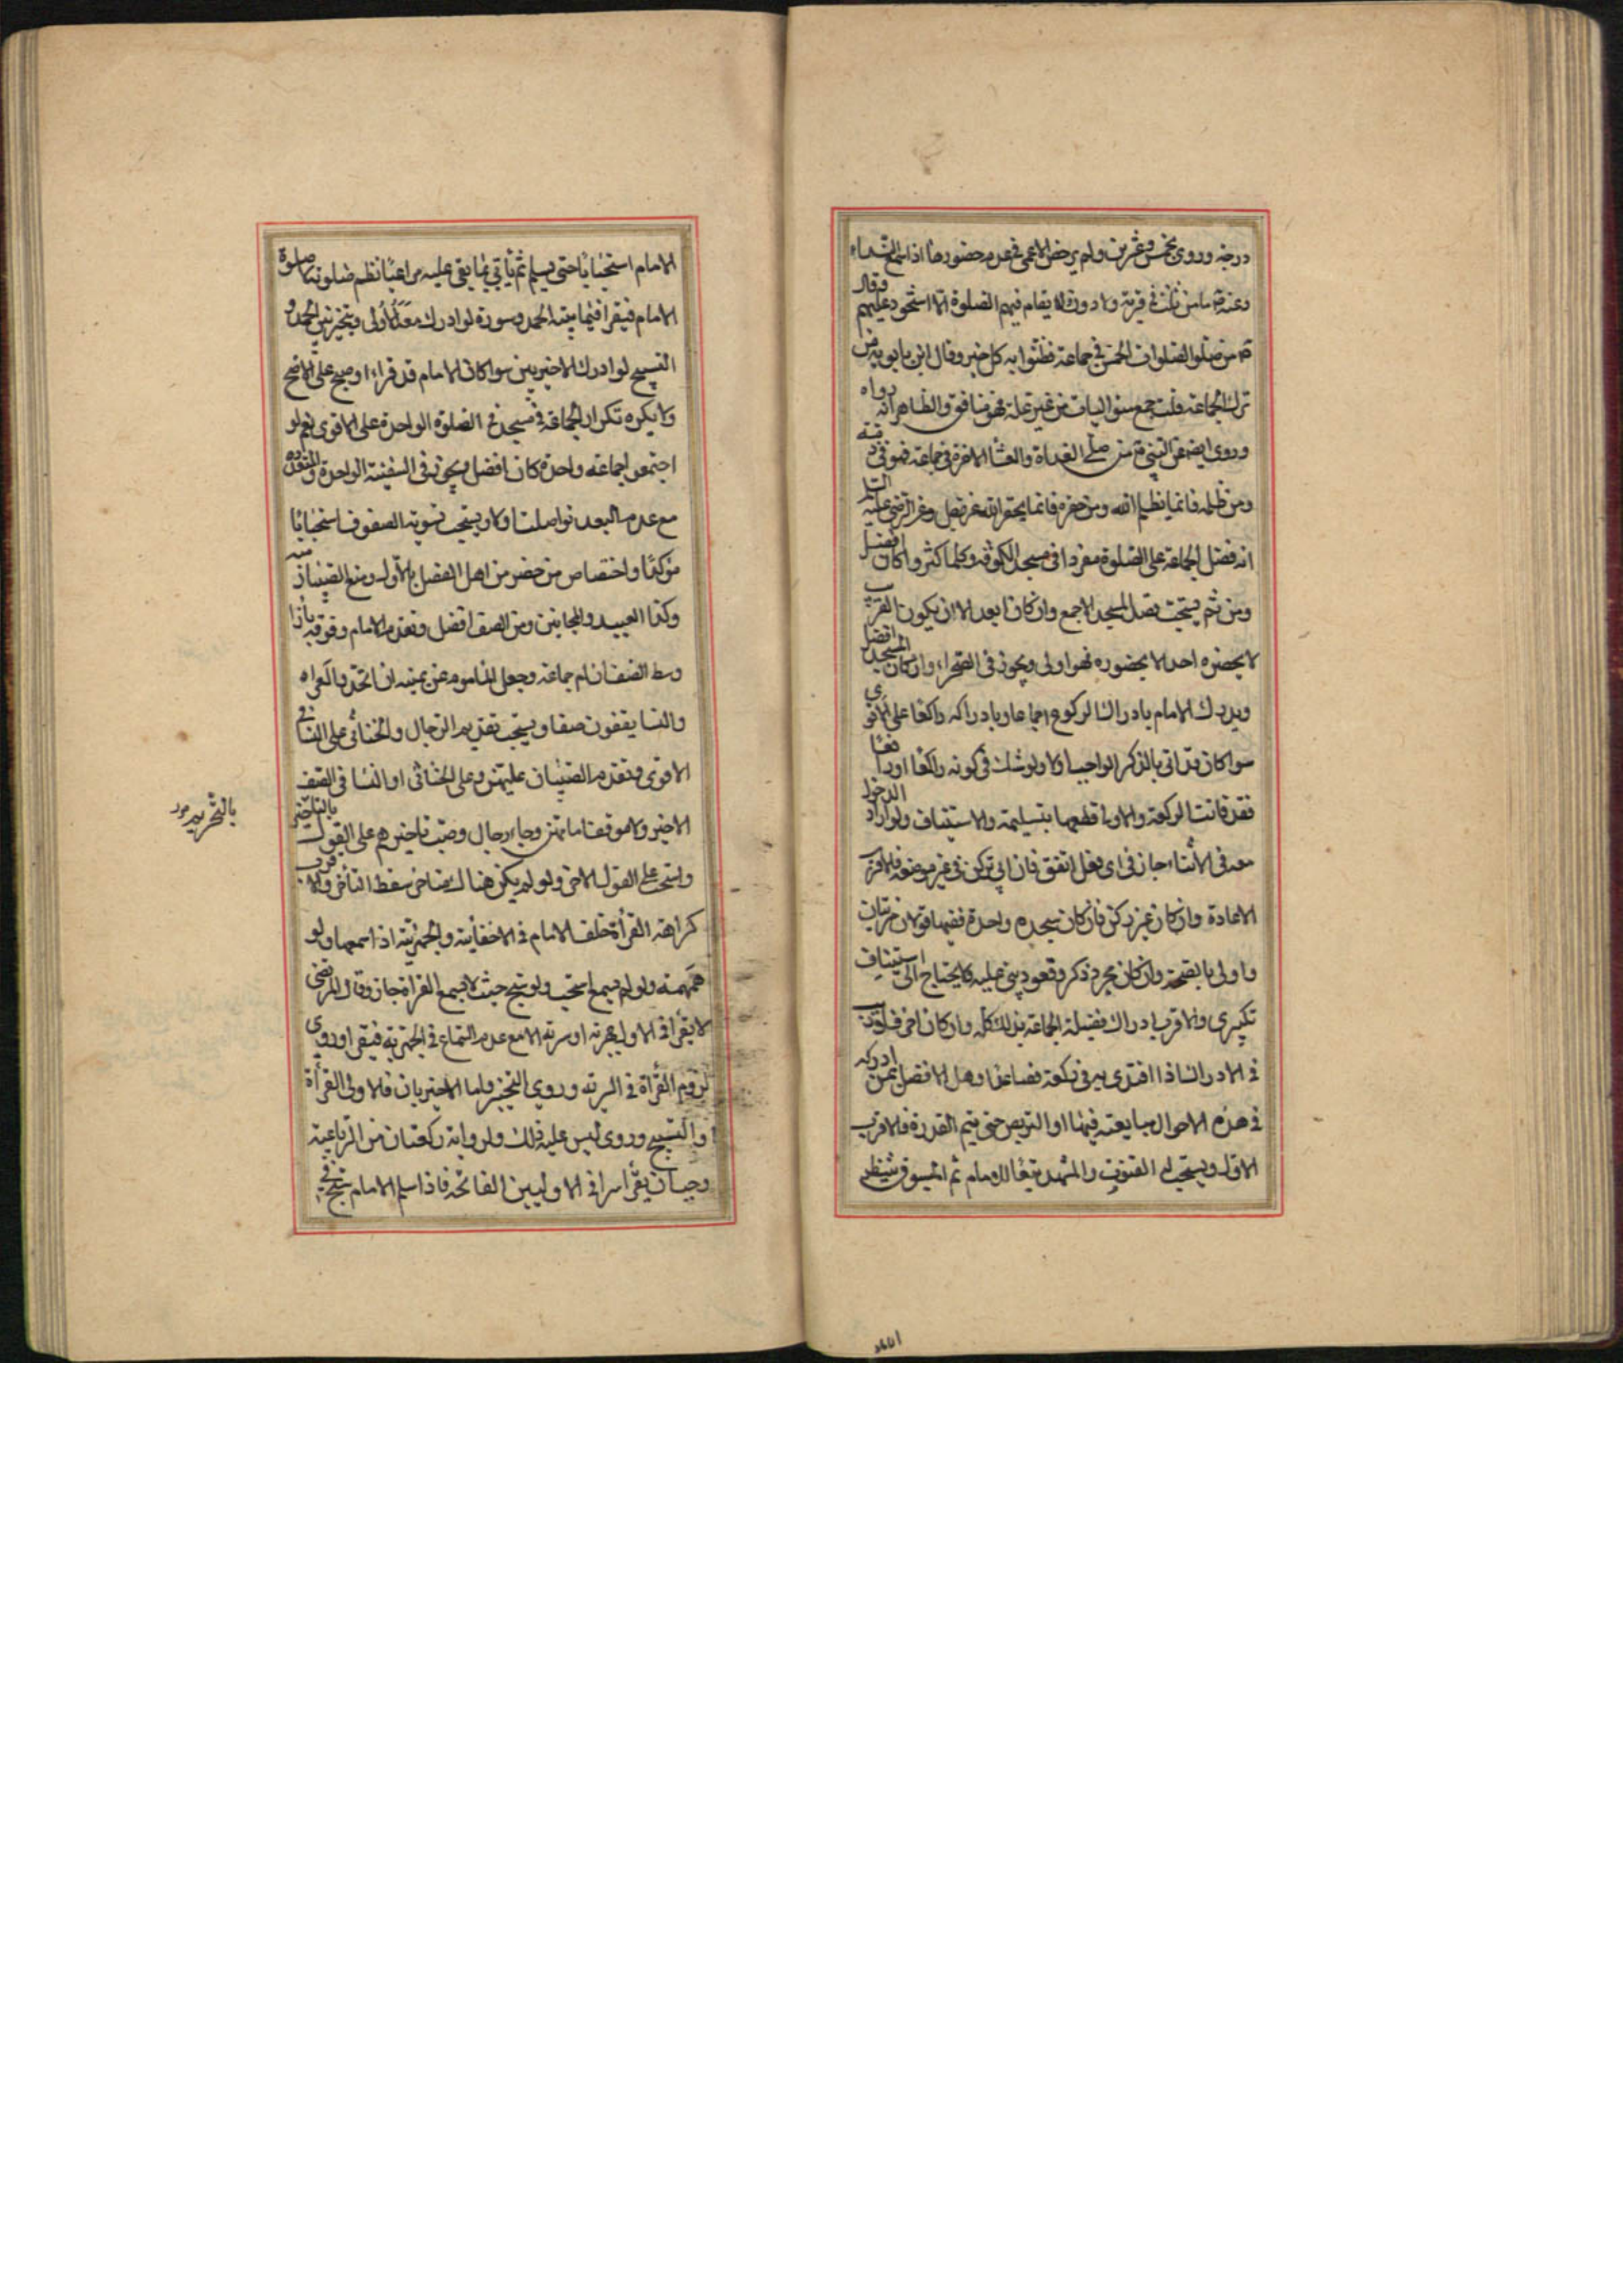 درجة وروي بخمس وعشرين ولم يرخص الاعمى في عدم حضورها اذا سمع النداء
وعنه ما من ثلثة في قرية ولا بدو لا يقام فيهم الصلوة الا استحوذ عليهم وقال
من صلى الصلوات الخمس في جماعة فظنوا به كل خير وقال ابن بابويه من
ترك الجماعة ثلث جمع متواليات من غير علة فهو منافق والظاهر انه رواه
وروي ايضا عن النبي من صلى الغداة والعشا الاخرة في جماعة فهو في ذمة
ومن ظلمه فانما يظلم الله ومن حقره فانما يحقر الله عز وجل وعن الرضى عليه السلم
انه فضل الجماعة على الصلوة مفردا في مسجد الكوفة وكلما كثروا كان افضل
ومن ثم يستحب قصد المسجد الاجمع وان كان ابعد الا ان يكون القرب
لا يحضره احد الا بحضوره فهو اولى ويجوز في الصحراء وان كان المسجد افضل
ويدرك الامام بادراك الركوع اجماعا وبادراكه راكعا على الاقوى
سوا كان قد اتى بالذكر الواجب او لا ولو شك في كونه راكعا او رافعا
فقد فاتت الركعة والاولى قطعها بتسليمة والاستيناف ولو اراد الدخول
معه في الاثناء جاز في اي فعل اتفق فان اتى بركن في غير موضعه فالاقرب
الاعادة وان كان غير ركن فان كان سجدة واحدة ففيها قولان مرتبان
واولى بالصحة وان كان مجرد ذكر وقعود بنى عليه لا يحتاج الى استيناف
تكبيرى والاقرب ادراك فضيلة الجماعة بذلك كله وان كان اخر متفاوتة
في الادراك اذا اقتدى به في ركعة فصاعدا وهل الافضل لمن ادركه
في هذه الاحوال متابعته فيها او التربص حتى يتم القدرة فالاقرب
الاول ويستحب له القنوت والتشهد تبعا للامام ثم المسبوق ينتظر
الامام استحبابا حتى يسلم ثم ياتي بما بقي عليه مراعيا نظم صلوته لا صلوة
الامام فيقرا فيما بقيته الحمد وسورة لو ادرك معه الاولى ويتخير بين الحمد و
التسبيح لو ادرك الاخيرتين سوا كان الامام قد قراء او سبح على الاصح
ولا يكره تكرار الجماعة في مسجد في الصلوة الواحدة على الاقوى نعم لو
اجتمعوا جماعة واحدة كان افضل ويجوز في السفينة الواحدة والمتعددة
مع عدم البعد تواصلت او لا ويستحب تسوية الصفوف استحبابا
مؤكدا واختصاص من حضر من اهل الفضل بالاول ومنع الصبيان منه
وكذا العبيد والمجانين ويمين الصف افضل وتقدم الامام ووقوفه بازاء
وسط الصف ان ام جماعة وجعل الماموم عن يمينه ان اتحد والعراة
والنسا يقفون صفا ويستحب تقديم الرجال والخناثى على النسا في
الاقوى وتقدم الصبيان عليهن وعلى الخناثى او النسا في الصف
الاخير ولا موقف امامهن وجاء رجال وجب تاخيرهن على القول بالتاخير
بالتحريم
واستحب على القول الاخر ولو لم يكن هناك متاخر سقط التاخر والاقرب
كراهة القراة خلف الامام في الاخفاتية والجهرية اذا سمعها ولو
همهمة ولو لم يسمع استحب ولو سبح حيث لا يسمع القراة جاز وقال المرتضى
لا يقرا في الاولى جهرية او سرية الا مع عدم السماع في الجهرية فيقرا وروي
لزوم القراة في السرية وروي التخيير واما الاخيرتان فالاولى القراة
او التسبيح وروي ليس عليه ذلك ولو فاته ركعتان من الرباعية
وجب ان يقرا سرا في الاوليين الفاتحة فاذا سلم الامام سبح في